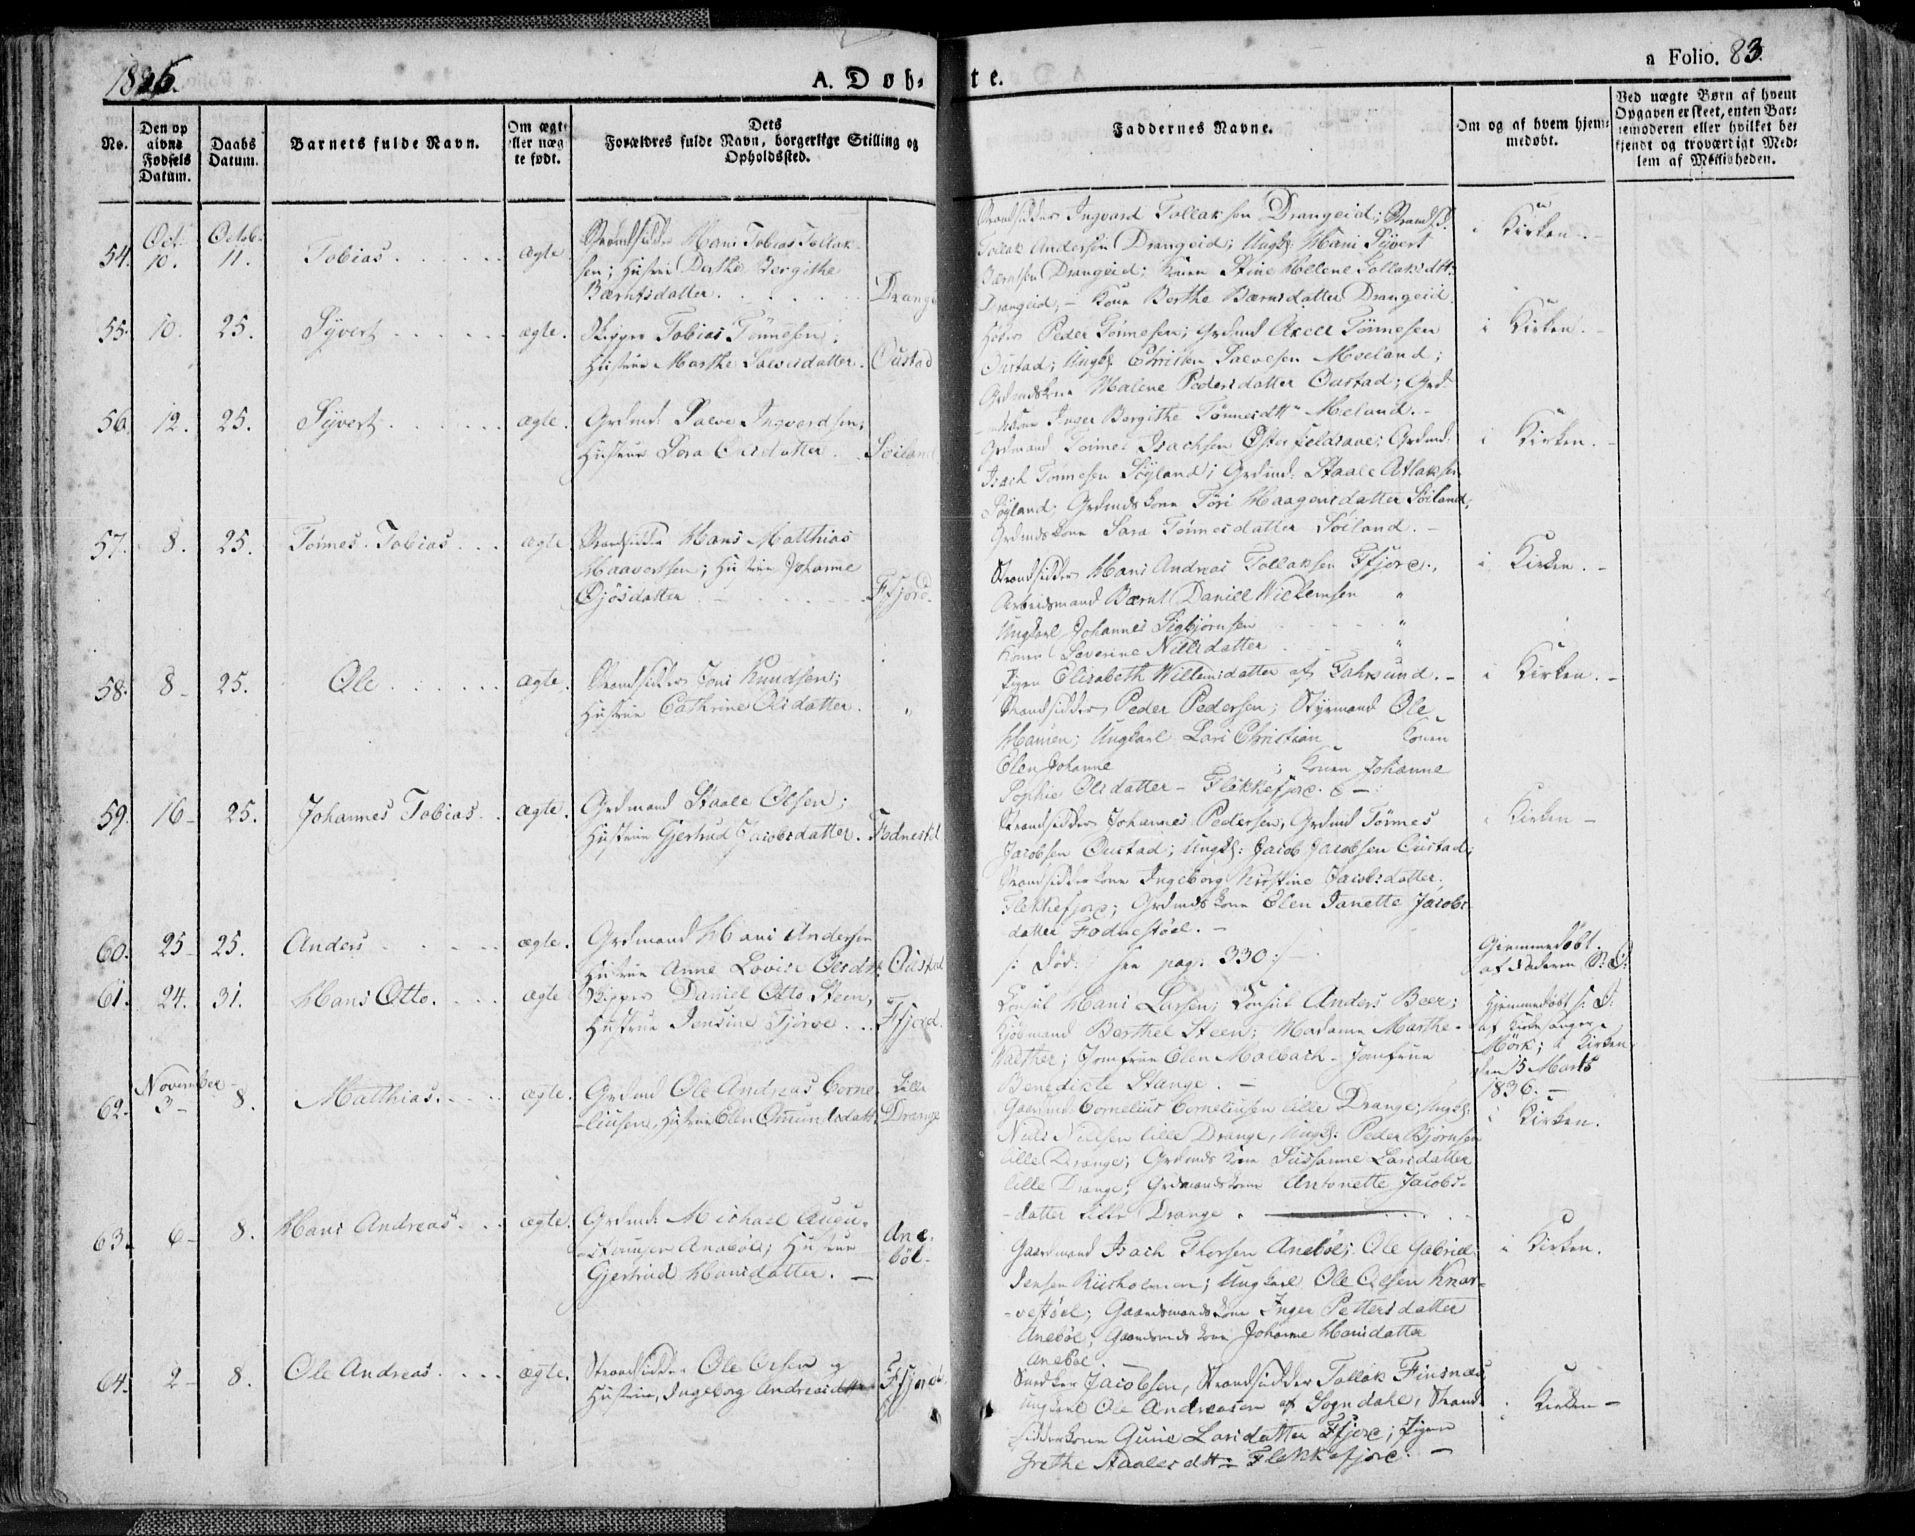 A. Døb-
te.
a Folio. 83.
No.
Den op
givne
Fødsels
Datum.
Daabs
Datum.
Barnets fulde Navn.
Om ægte
eller uæg
te født.
Dets
Forældres fulde Navn, borgerlige Stilling og
Opholdssted.
Faddernes Navne.
Om og af hvem hjem-
medøbt.
Ved uægte Børn af hvem
Opgaven er skeet, enten Bar-
nemoderen eller hvilket be-
kjendt og troværdigt Med-
lem af Menigheden.
54.
Oct.
10.
Octob.
11.
Tobias
ægte
Strandsidder Hans Tobias Tollak-
sen; Hustrue Berthe Bergithe
Bærntsdatter.
Drange
Strandsidder Ingvard Tollaksen Drangeid; Strands.
Tollak Andersen Drangeid; Ungk. Hans Syvert
Bærntsen Drangeid; Konen Stine Helene Tollaksdtt.
Drangeid; - Kone Berthe Bærnsdatter Drangeid.
i Kirken.
55.
10.
25.
Syvert
ægte.
Skipper Tobias Tönnesen;
Hustrue Marthe Salvesdatter.
Oustad
Peder Tönnesen; Grdmd Axel Tönnesen
Oustad; Ungk. Christen Salvesen Moeland;
Grdmdskone Malene Pedersdatter Oustad; Grd-
mdskone Inger Bergithe Tönnesdtt Meland.
i Kirken.
56.
12.
25.
Syvert
ægte.
Grdmd: Salve Ingvardsen;
Hustrue Sara Olsdatter
Söiland
Grdmand Tönnes Isachsen Øster ; Grdmd:
Isach Tönnesen Söyland; Grdmd: Staale Atlaksen
Söyland; Grdmdskone Töri Haagensdatter Söiland,
Grdmdskone Sara Tönnesdatter Söiland. -
i Kirken.
57.
8.
25.
Tönnes Tobias
ægte
Strandsidder Hans Matthias
Haavorsen; Hustrue Johanne
Gjösdatter
Ffjord.
Strandsidder Hans Andreas Tollaksen Ffjord.,
Arbeidsmand Bærnt Daniel Willemsen "
Ungkarl Johannes Sigbjörnsen "
Konen Severine Nielsdatter "
Pigen Elisabeth Willemsdatter af Fahrsund. -
i Kirken. -
58.
8-
25.
Ole
ægte.
Strandsidder Jens Knudsen;
Hustrue Cathrine Olsdatter.
"
Strandsidder Peder Pedersen; Styrmand Ole
Hansen; Ungkarl Lars Christian Konen
Elen Johanne ; Konen Johanne
Sophie Olsdatter - Flekkefjord.
i Kirken. -
59.
16-
25.
Johannes Tobias
ægte.
Grdmand Staale Olsen;
Hustrue Gjertrud Jacobsdatter.
Fodnestöl
Strandsidder Johannes Pedersen, Grdmd Tönnes
Jacobsen Oustad; Ungk: Jacob Jacobsen Oustad;
Strandsidderkone Ingeborg Kirstine Jacobsdatter,
Flekkefjord; Grdmdskone Elen Janette Jacobs-
datter Fodnestöel. -
i Kirken -
60.
25-
25.
Anders
ægte.
Grdmand Hans Andersen
Hustrue Anne Lovise Olsdtt.
Oustad
/: Död. see pag: 330 :/
Hjemmedöbt.
af Faderen
61.
24.
31.
Hans Otto.
ægte
Skipper Daniel Otto Steen,
Hustrue Jensine Fjörve
Ffjord.
Konsul Hans Larsen; Konsul Anders Beer;
Kjöbmand Berthel Steen; Madame Marthe
Walther; Jomfrue Elen Molbach - Jomfrue
Benedikte Stange. -
Hjemmedöbt
af Kirkesanger
Mörk; i Kirken
den 15 Marts
1836. -
62.
November
3-
8.
Matthias.
ægte.
Grdmd Ole Andreas Corne-
liusen, Hustrue Elen Omundsdatt:
Lille
Drange
Gaardmd: Cornelius Corneliusen lille Drange; Ungk:
Niels Nielsen lille Drange, Ungk: Peder Björnsen
lille Drange; Grdmdskone Susanne Larsdatter
lille Drange; Grdmandskone Antonette Jacobs-
datter Lille Drange.
i Kirken.
63.
6-
8.
Hans Andreas.
ægte.
Grdmd: Michael Augu-
stinusen Aneböl; Hustrue
Gjertrud Hansdatter. -
Ane-
böl.
Gaardmand Isach Thorsen Aneböl; Ole Gabriel
Jensen Riisholmen; Ungkarl Ole Olsen Knar-
vestöel; Gaardmandskone Inger Pettersdatter
Aneböl; Gaardmdskone Johanne Hansdatter
Aneböl
i Kirken.
64.
2-
8.
Ole Andreas.
ægte.
Strandsidder Ole Olsen og
Hustrue, Ingeborg Andreasdatter
Ffjord.
Snedker Jacobsen, Strandsidder Tollak Finsnæs,
Ungkarl Ole Andreasen af Sogndahl, Strand-
sidderkone Gunil Larsdatter Ffjord; Pigen
Grethe Staalesdtt: Flekkefjord. -
i Kirken -